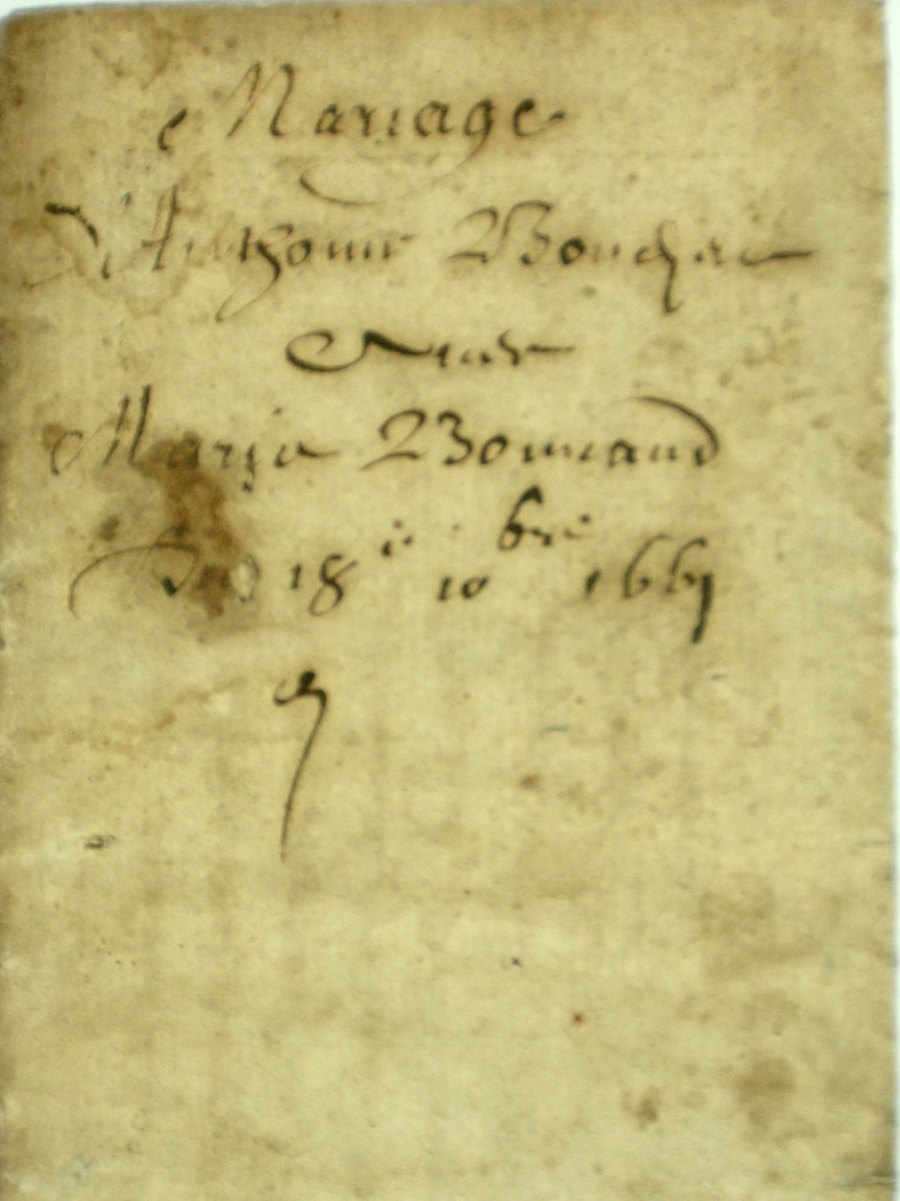 Mariage
D'Anthoine Bouchet
Avec
Marie Bonnaud
Du 18e 10bre 1661